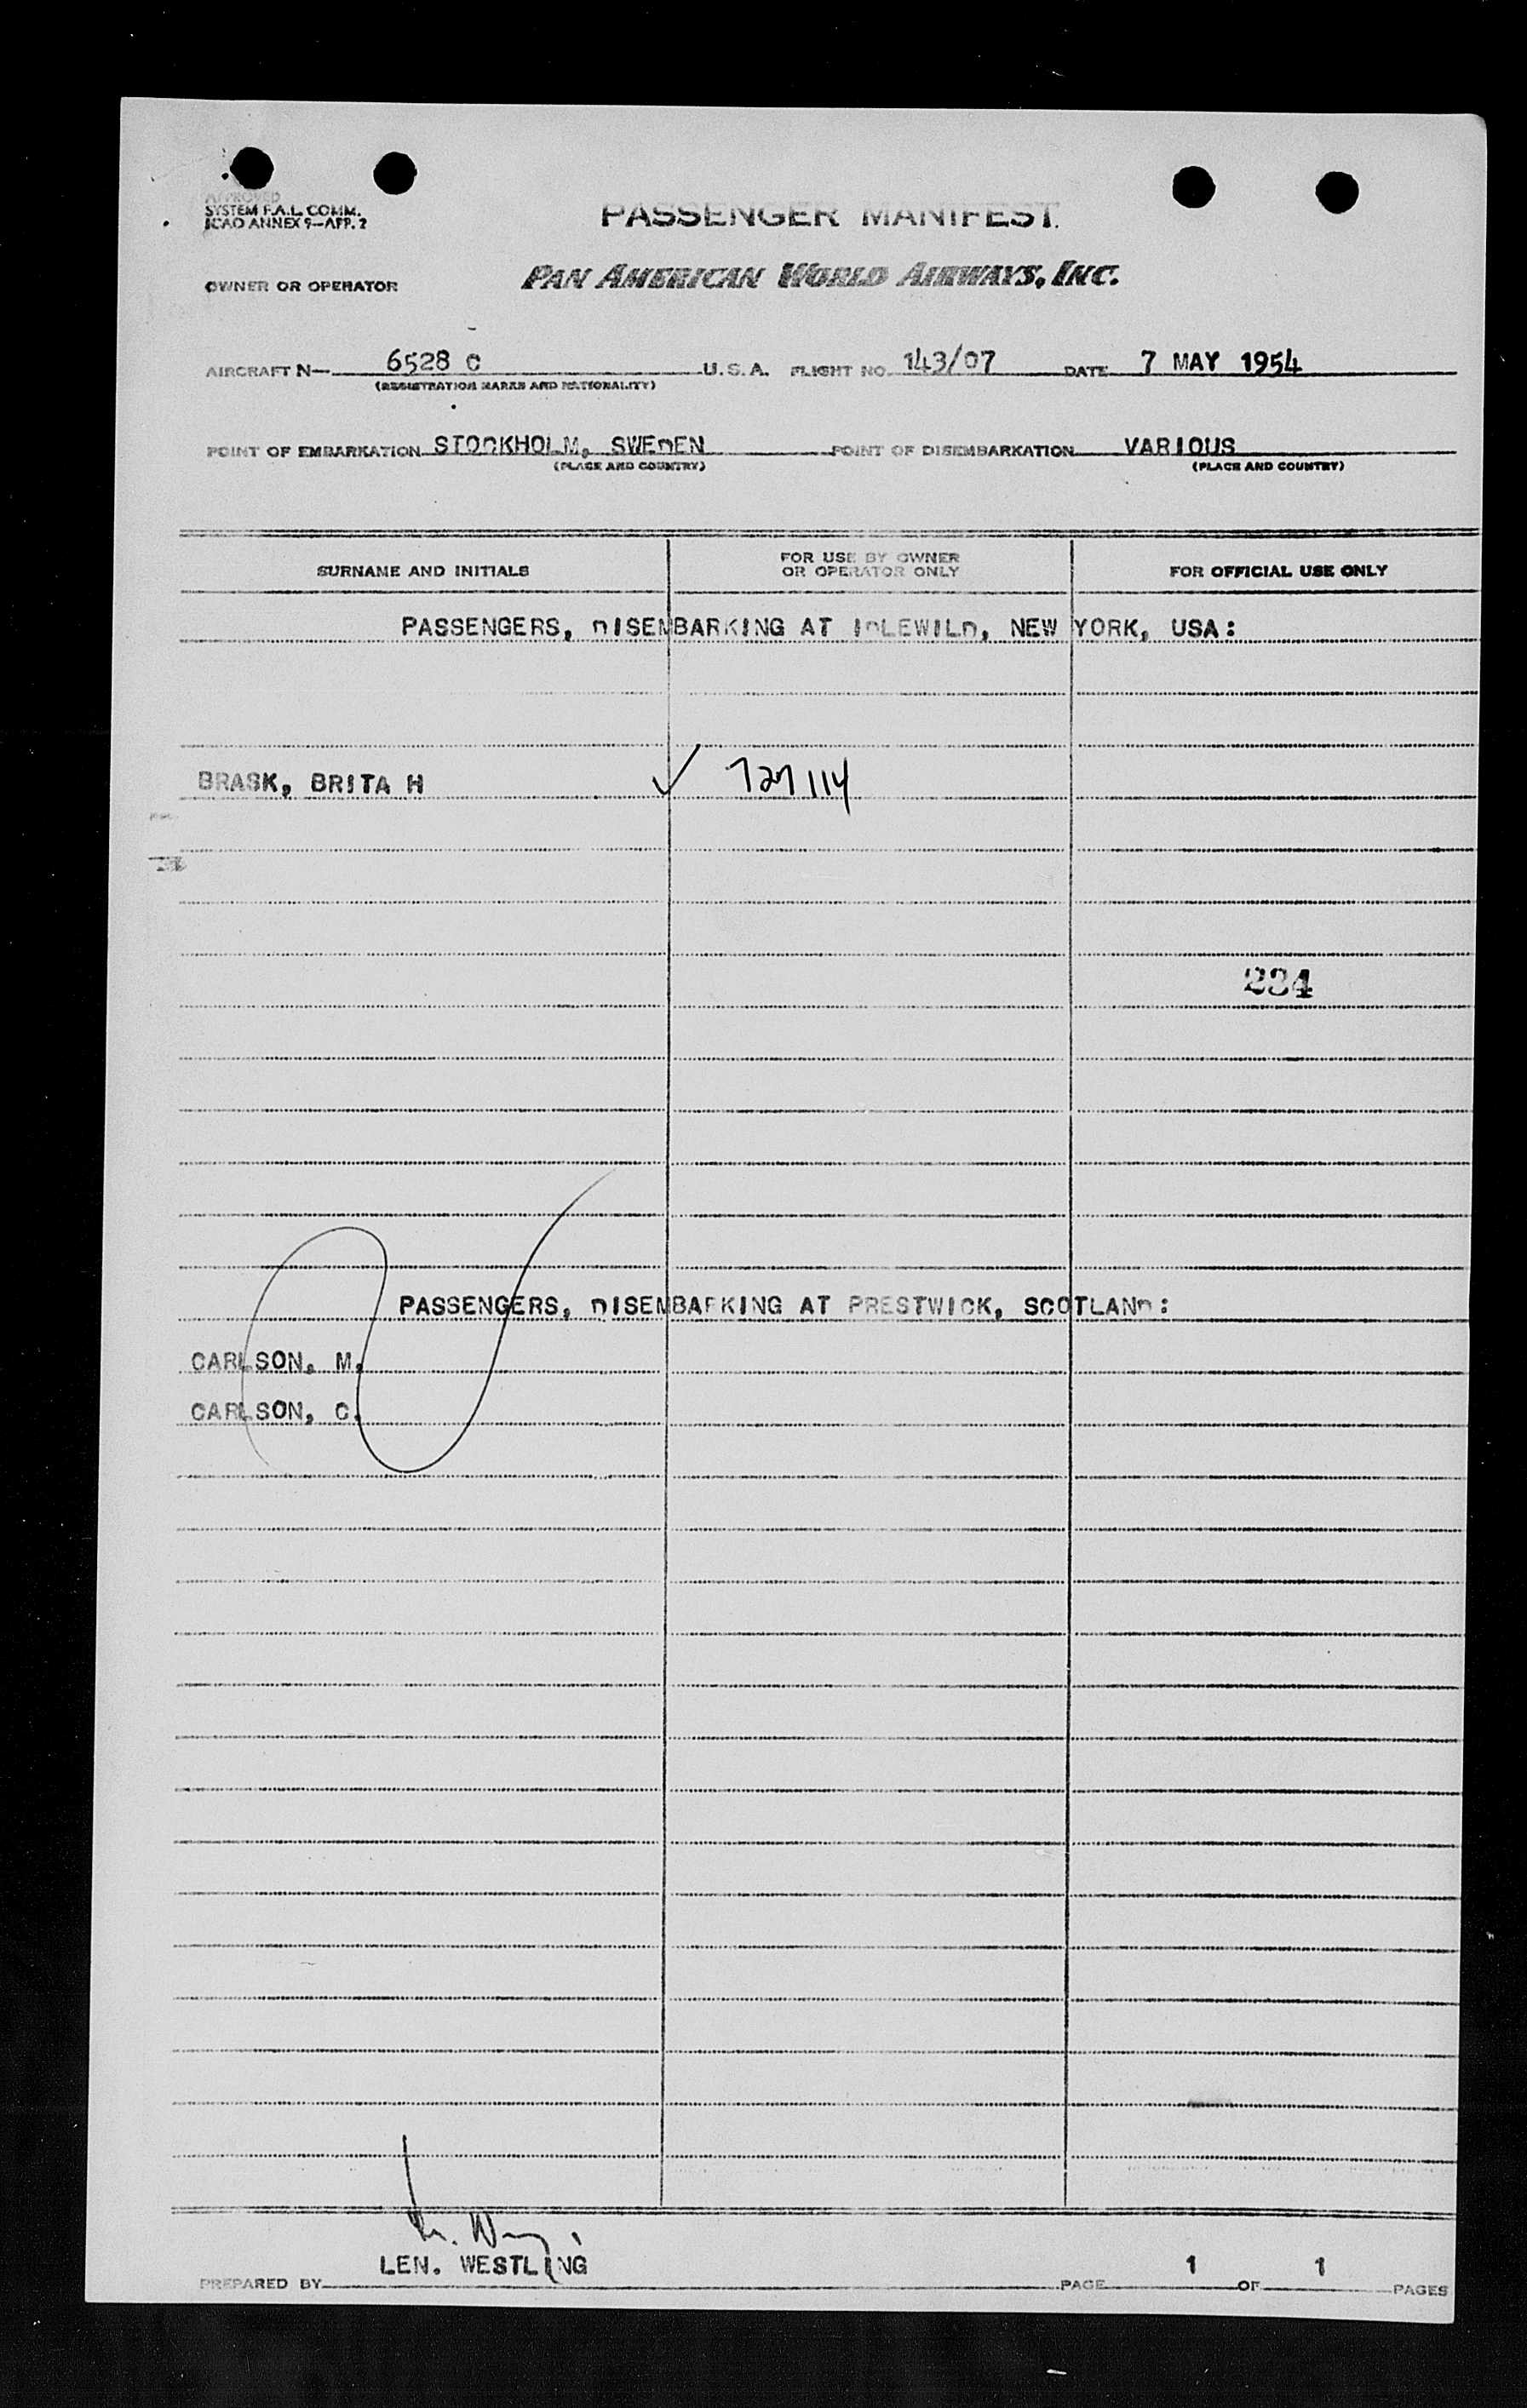 APPROVED
SYSTEM F.A.L. COMM.
ICAO ANNEX 9—APP. 2
PASSENGER MANIFEST
OWNER OR OPERATOR PAN AMERICAN WORLD AIRWAYS, INC.
AIRCRAFT N— 6528 C U.S.A. FLIGHT NO. 143/07 DATE 7 MAY 1954
(REGISTRATION MARKS AND NATIONALITY)
POINT OF EMBARKATION STOCKHOLM, SWEDEN POINT OF DISEMBARKATION VARIOUS
(PLACE AND COUNTRY) (PLACE AND COUNTRY)
SURNAME AND INITIALS FOR USE BY OWNER OR OPERATOR ONLY FOR OFFICIAL USE ONLY
PASSENGERS, DISEMBARKING AT IDLEWILD, NEW YORK, USA:
BRASK, BRITA H ✓ 727114
234
PASSENGERS, DISEMBARKING AT PRESTWICK, SCOTLAND:
CARLSON, M.
CARLSON, C.
LEN. WESTLING
PREPARED BY PAGE 1 OF 1 PAGES